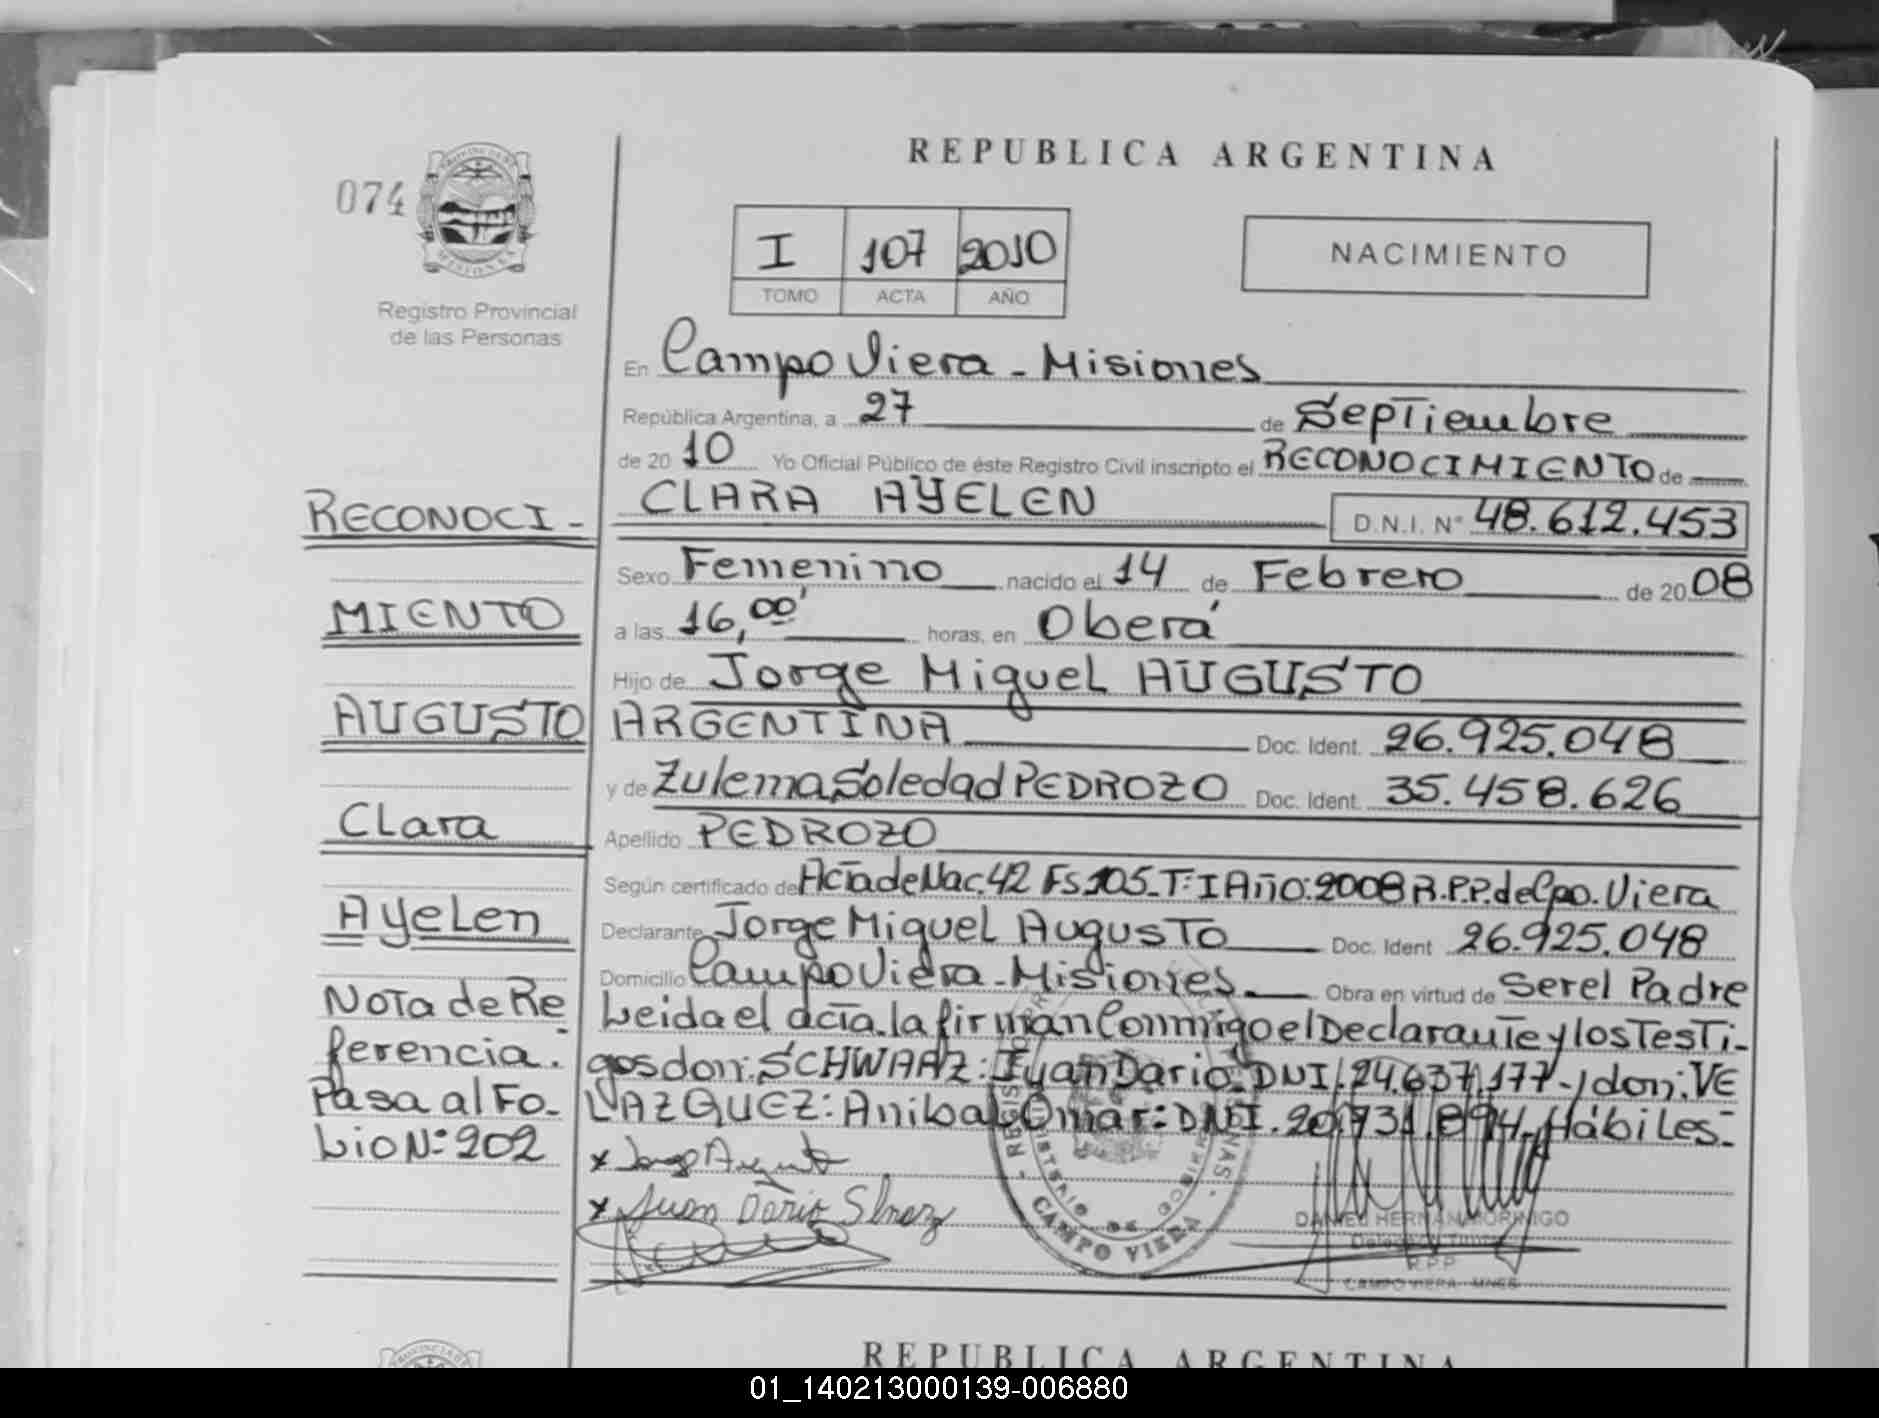 REPUBLICA ARGENTINA
074
I 107 2010
TOMO ACTA AÑO
NACIMIENTO
Registro Provincial
de las Personas
En Campo Viera - Misiones
República Argentina, a 27 de Septiembre
de 20 10 Yo Oficial Público de éste Registro Civil inscripto el RECONOCIMIENTO de
CLARA AYELEN D.N.I. N° 48.612.453
Sexo Femenino nacido el 14 de Febrero de 20 08
a las 16,00' horas, en Oberá
Hijo de Jorge Miguel AUGUSTO
ARGENTINA Doc. Ident. 26.925.048
y de Zulema Soledad PEDROZO Doc. Ident. 35.458.626
Apellido PEDROZO
Según certificado de Acta de Nac. 42 Fs 105 - T: I Año: 2008 R.P.P. de Cpo. Viera
Declarante Jorge Miguel Augusto Doc. Ident 26.925.048
Domicilio Campo Viera - Misiones Obra en virtud de Ser el Padre
Leida el acta. la firman Conmigo el Declarante y los Testi-
gos don: SCHWARZ: Juan Dario DNI. 24.637.177 - y don: VE
LAZQUEZ: Anibal Omar: DNI. 20.731.894 - Hábiles.-
RECONOCI-
MIENTO
AUGUSTO
Clara
Ayelen
Nota de Re
ferencia:
Pasa al Fo-
lio N: 202
x Jorge August
x Juan Dario
CAMPO VIERA
DANIEL HERNAN MORINIGO
Delegado Titular
R.P.P.
CAMPO VIERA - MNES
REPUBLICA ARGENTINA
01_140213000139-006880